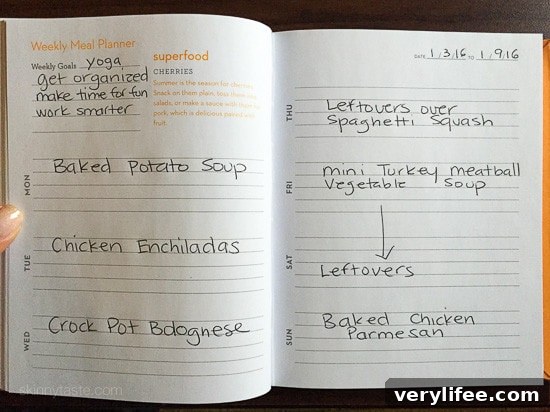 Weekly Meal Planner
Weekly Goals yoga
get organized
make time for fun
work smarter
superfood
CHERRIES
Summer is the season for cherries.
Snack on them plain, toss them in
salads, or make a sauce with
pork, which is delicious paired with
fruit.
MON
Baked Potato Soup
TUE
Chicken Enchiladas
WED
Crock Pot Bolognese
skinnytaste.com
DATE 1/3/16 TO 1/9/16
THU
Leftovers over
Spaghetti Squash
FRI
mini Turkey meatball
Vegetable Soup
SAT
Leftovers
SUN
Baked Chicken
Parmesan
verylifee.com